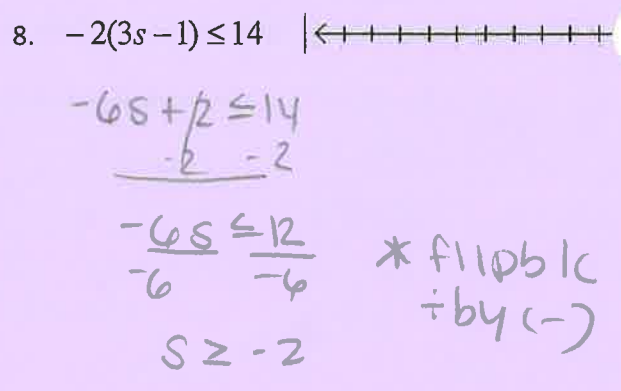 8. -2(3s-1) ≤ 14
-6s+2 ≤ 14
-2 -2
-6s ≤ 12
-6 -6
* flip b/c
÷ by (-)
s ≥ -2